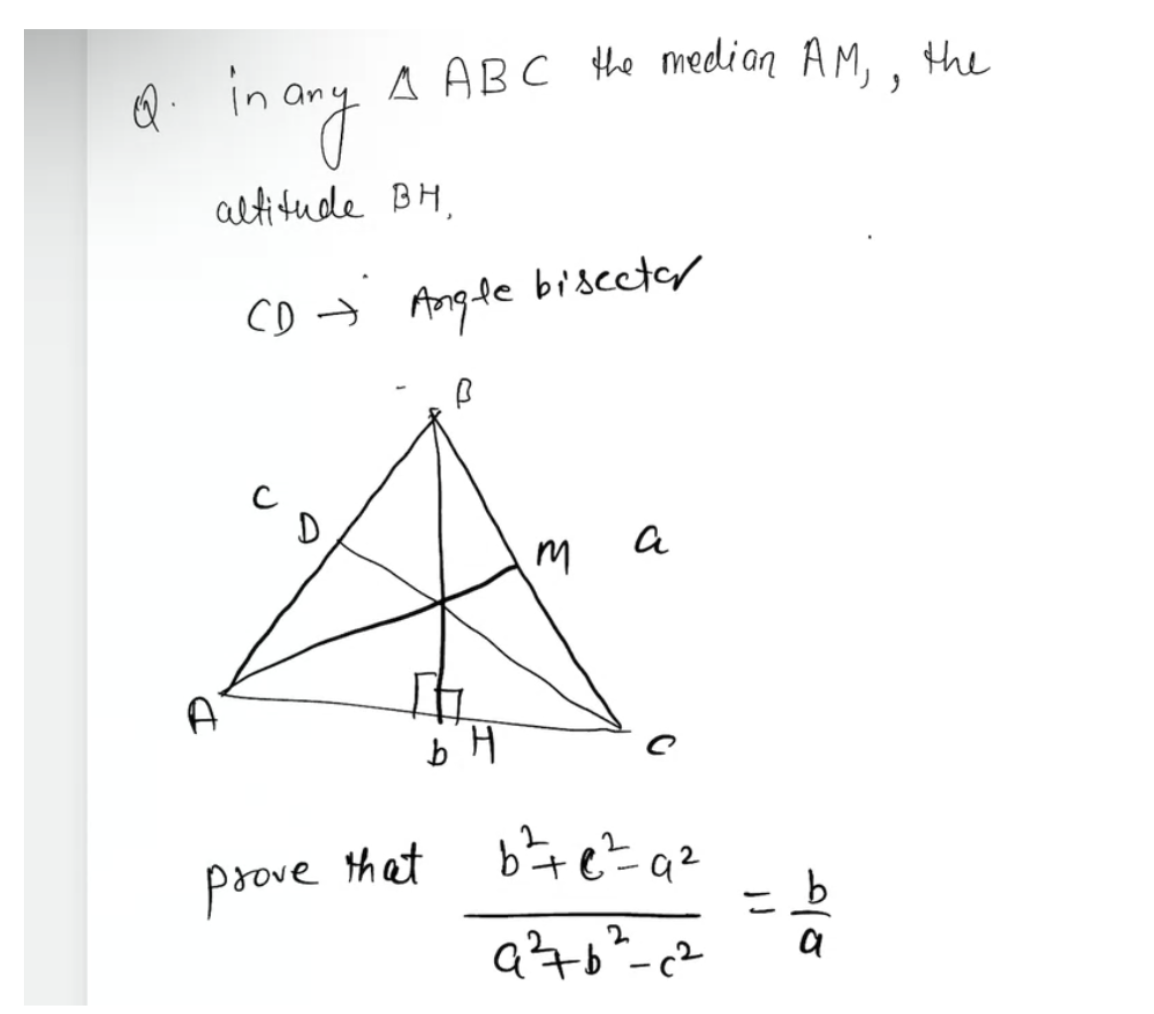 Q. in any Δ ABC the median AM, , the
altitude BH,
CD → Angle bisector
B
C
D
M a
A
b H
C
prove that b²+c²-a² / a²+b²-c² = b/a